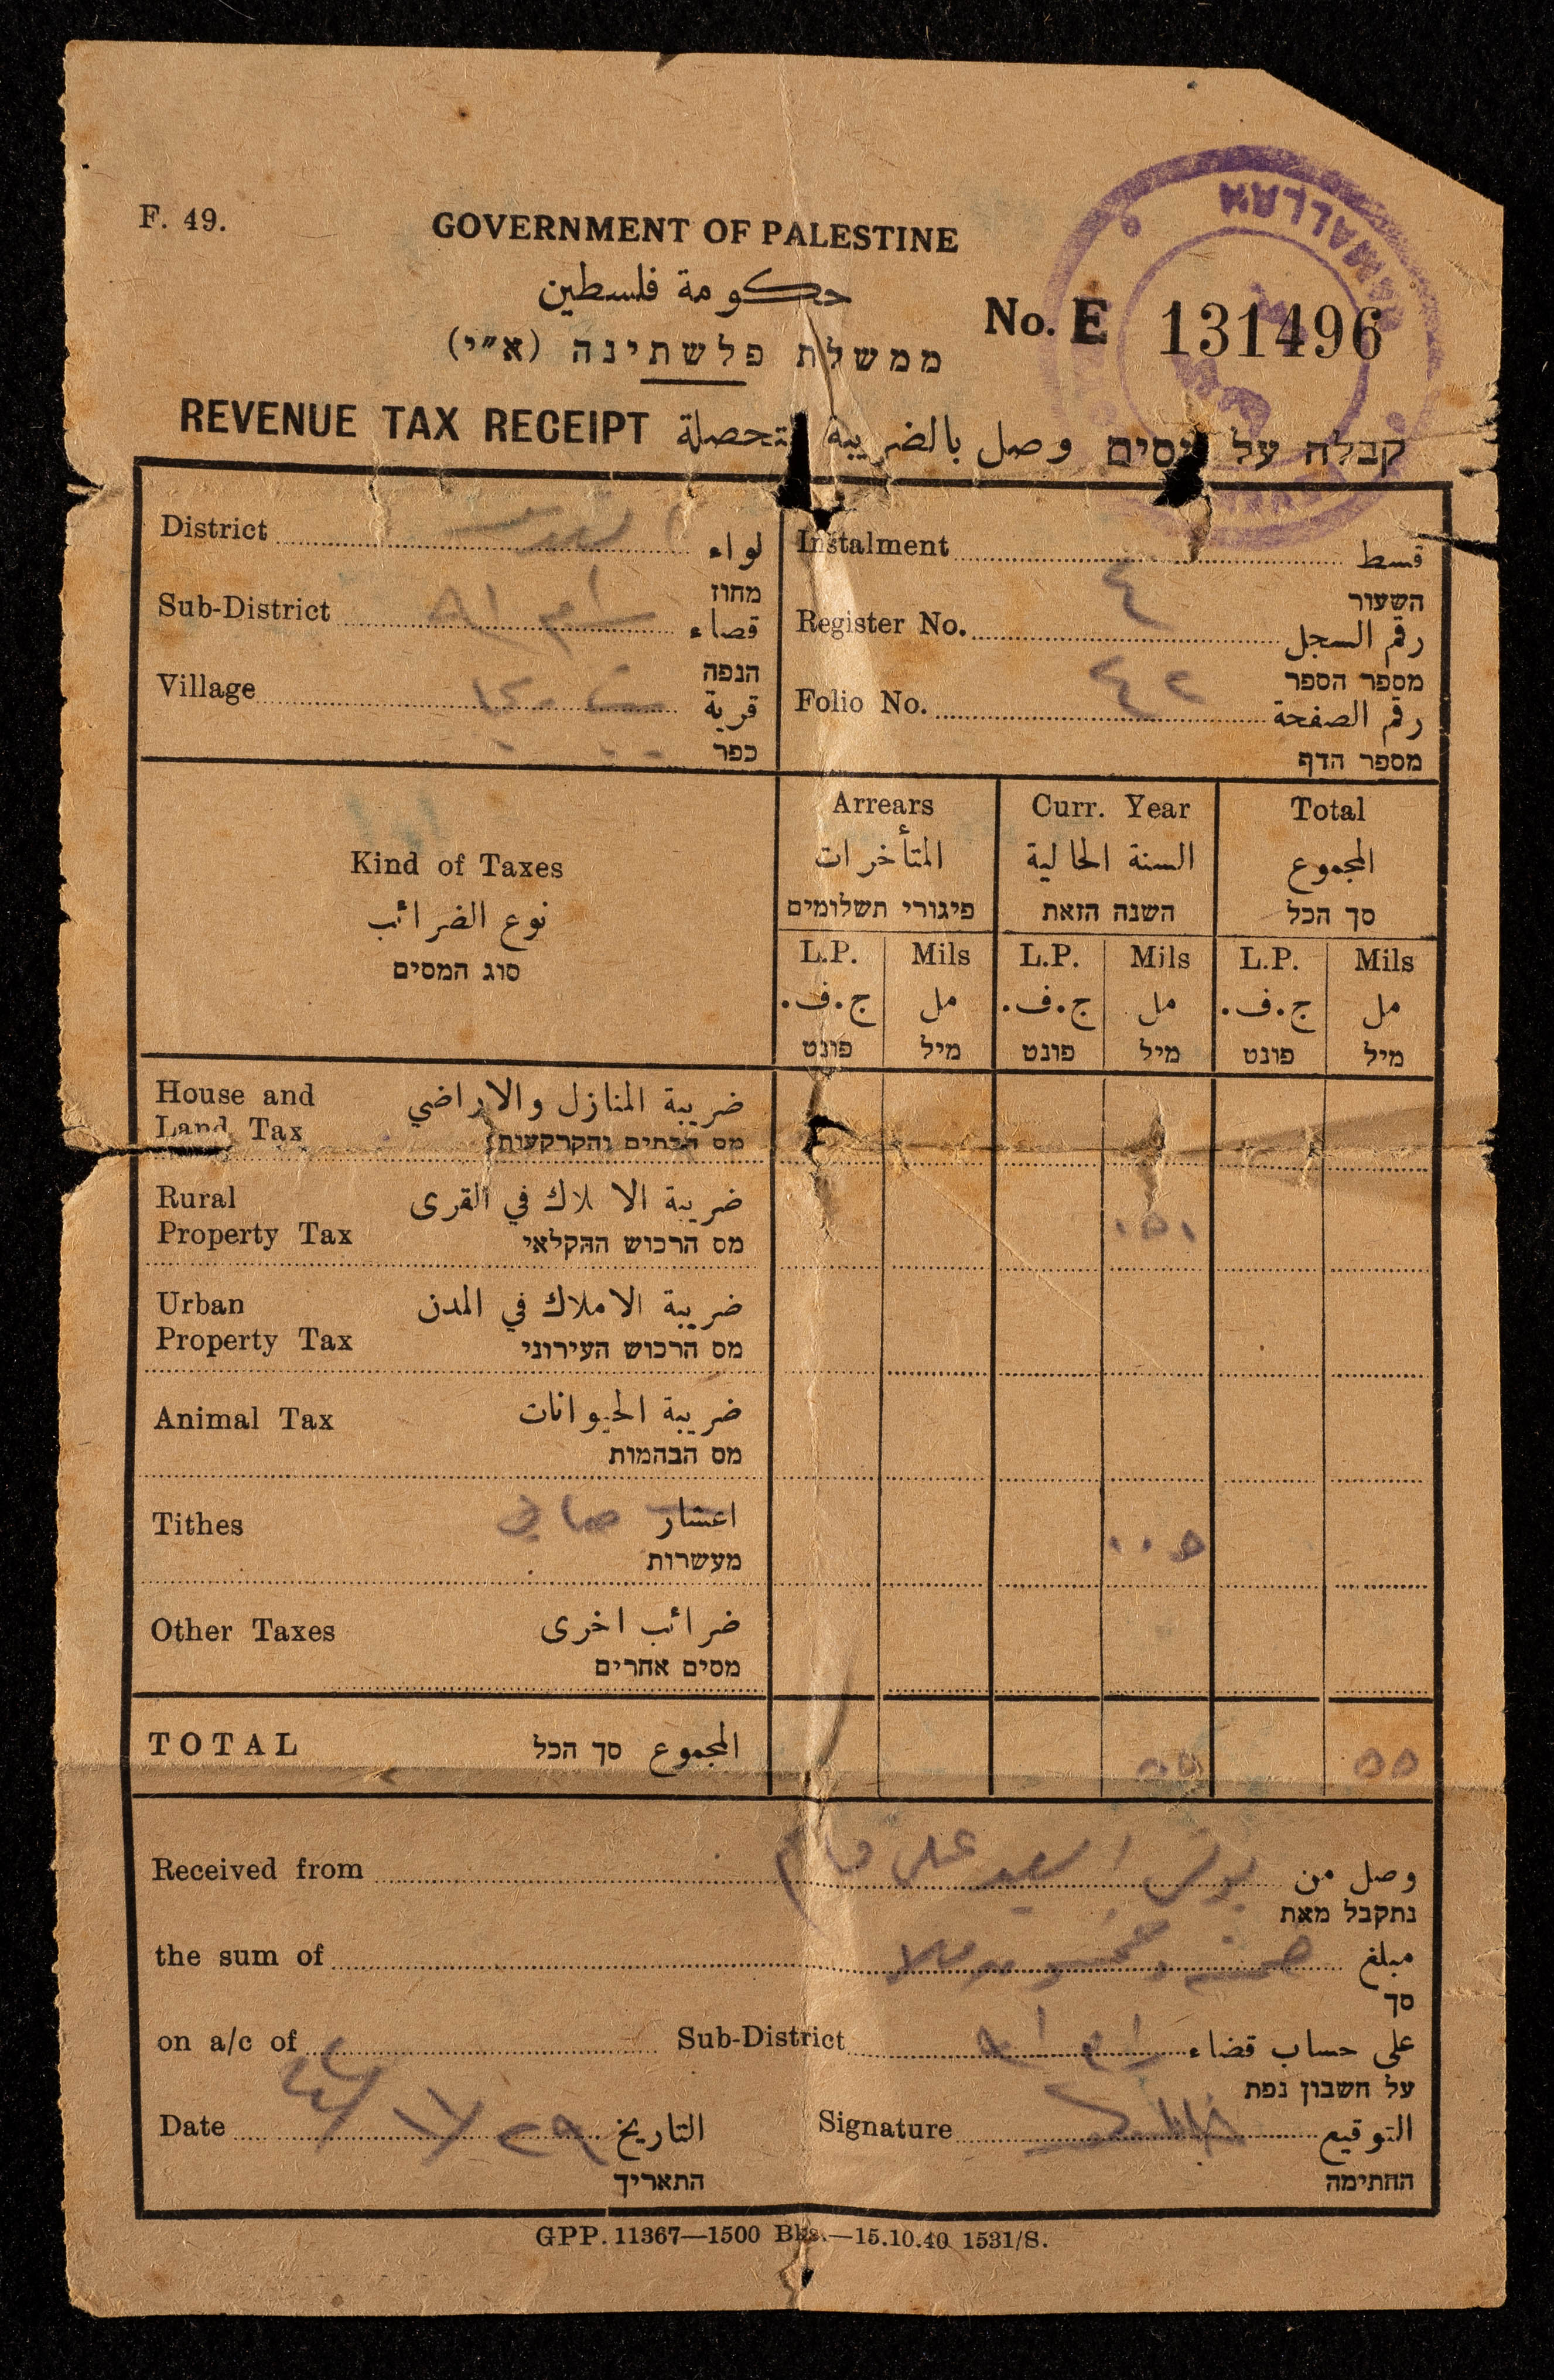 F. 49.
GOVERNMENT OF PALESTINE
حكومة فلسطين
ממשלת פלשתינה (א״י)
RAMALLAH
No. E 131496
REVENUE TAX RECEIPT وصل بالضريبة المتحصلة קבלה על מסים
District القدس لواء
מחוז
Sub-District رام الله قضاء
הנפה
Village قرية
כפר
Instalment قسط
השעור
Register No. ٤ رقم السجل
מספר הספר
Folio No. ٤٢ رقم الصفحة
מספר הדף
Kind of Taxes
نوع الضرائب
סוג המסים
Arrears Curr. Year Total
المتأخرات السنة الحالية المجموع
פיגורי תשלומים השנה הזאת סך הכל
L.P. Mils L.P. Mils L.P. Mils
ج.ف. مل ج.ف. مل ج.ف. مل
פונט מיל פונט מיל פונט מיל
House and ضريبة المنازل والاراضي
Land Tax מס הבתים והקרקעות
Rural ضريبة الاملاك في القرى
Property Tax מס הרכוש החקלאי
٠٥٠
Urban ضريبة الاملاك في المدن
Property Tax מס הרכוש העירוני
Animal Tax ضريبة الحيوانات
מס הבהמות
Tithes اعشار
מעשרות
٠٠٥
Other Taxes ضرائب اخرى
מסים אחרים
TOTAL المجموع סך הכל ٥٥ ٥٥
Received from السعيد علي وصل من
נתקבל מאת
the sum of خمسة وخمسون ملا مبلغ
סך
on a/c of Sub-District رام الله على حساب قضاء
על חשבון נפת
Date ٢٩ التاريخ
התאריך
Signature التوقيع
החתימה
GPP. 11367—1500 Bks.—15.10.40 1531/S.